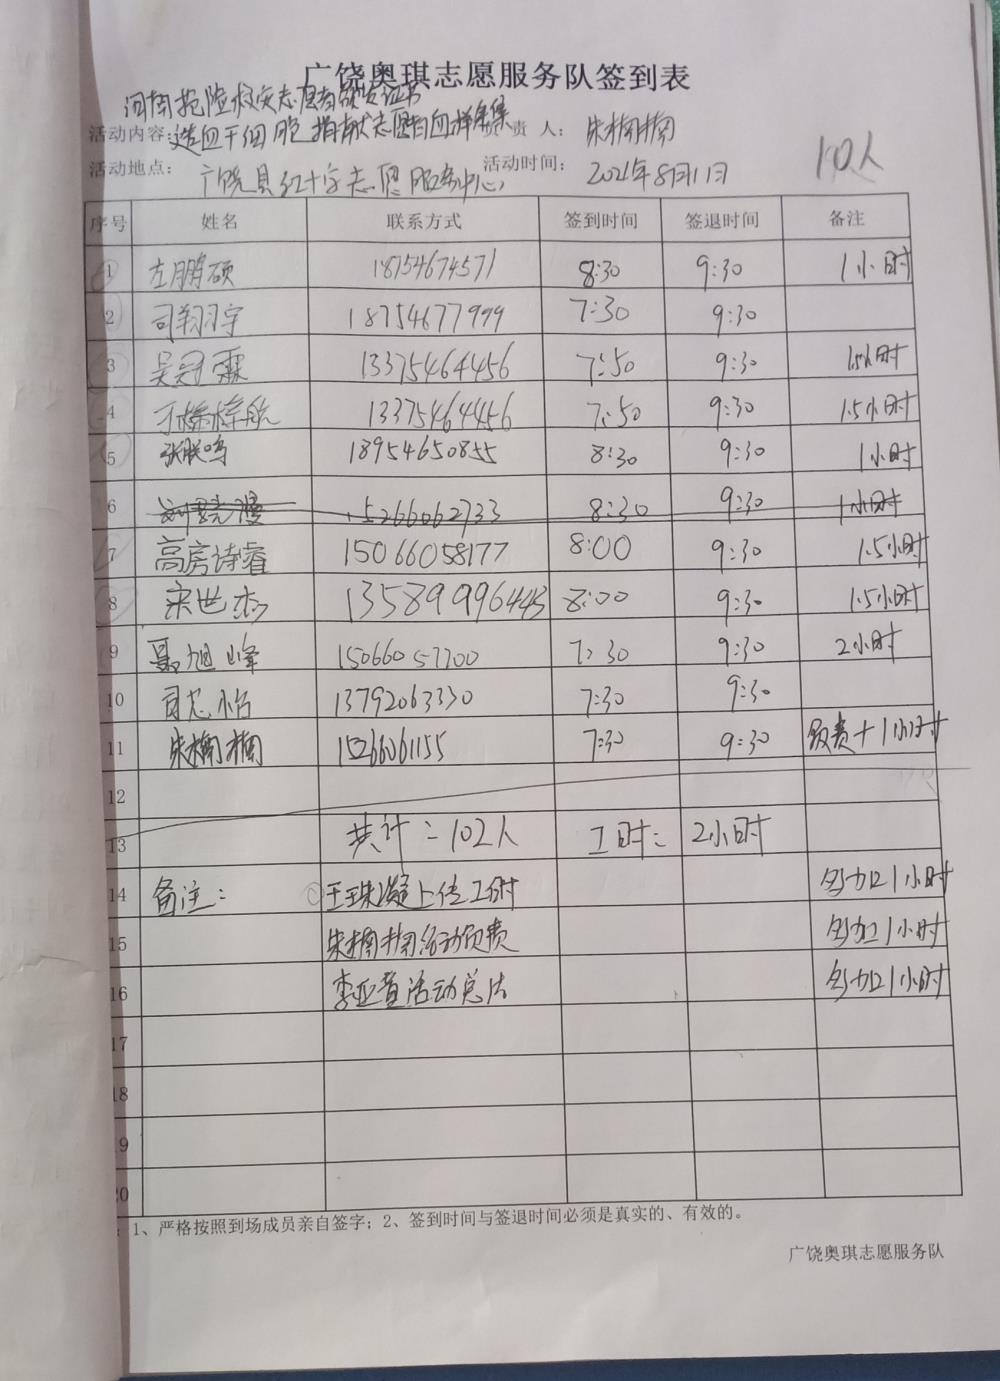 广饶奥琪志愿服务队签到表
河南抢险救灾志愿者颁发证书
活动内容：造血干细胞捐献志愿者血样采集 负责人： 朱楠楠
10人
活动地点： 广饶县红十字志愿服务中心 活动时间： 2021年8月11日
序号 姓名 联系方式 签到时间 签退时间 备注
1 左鹏硕 18754674571 8:30 9:30 1小时
2 司翔宇 18754677999 7:30 9:30
3 吴冠霖 13375464456 7:50 9:30 1.5小时
4 13375464456 7:50 9:30 1.5小时
5 张朕鸣 18954650855 8:30 9:30 1小时
6 15266062733 8:30 9:30 1小时
7 高房诗睿 15066058177 8:00 9:30 1.5小时
8 宋世杰 13589996443 8:00 9:30 1.5小时
9 聂旭峰 15066057700 7:30 9:30 2小时
10 司芯怡 13792063330 7:30 9:30
11 朱楠楠 15266061155 7:30 9:30 负责+1小时
12
13 共计：102人 工时： 2小时
14 备注： ①王珠凝上传工时 多加1小时
15 朱楠楠活动负责 多加1小时
16 活动总结 多加1小时
17
18
19
20
1、严格按照到场成员亲自签字；2、签到时间与签退时间必须是真实的、有效的。
广饶奥琪志愿服务队